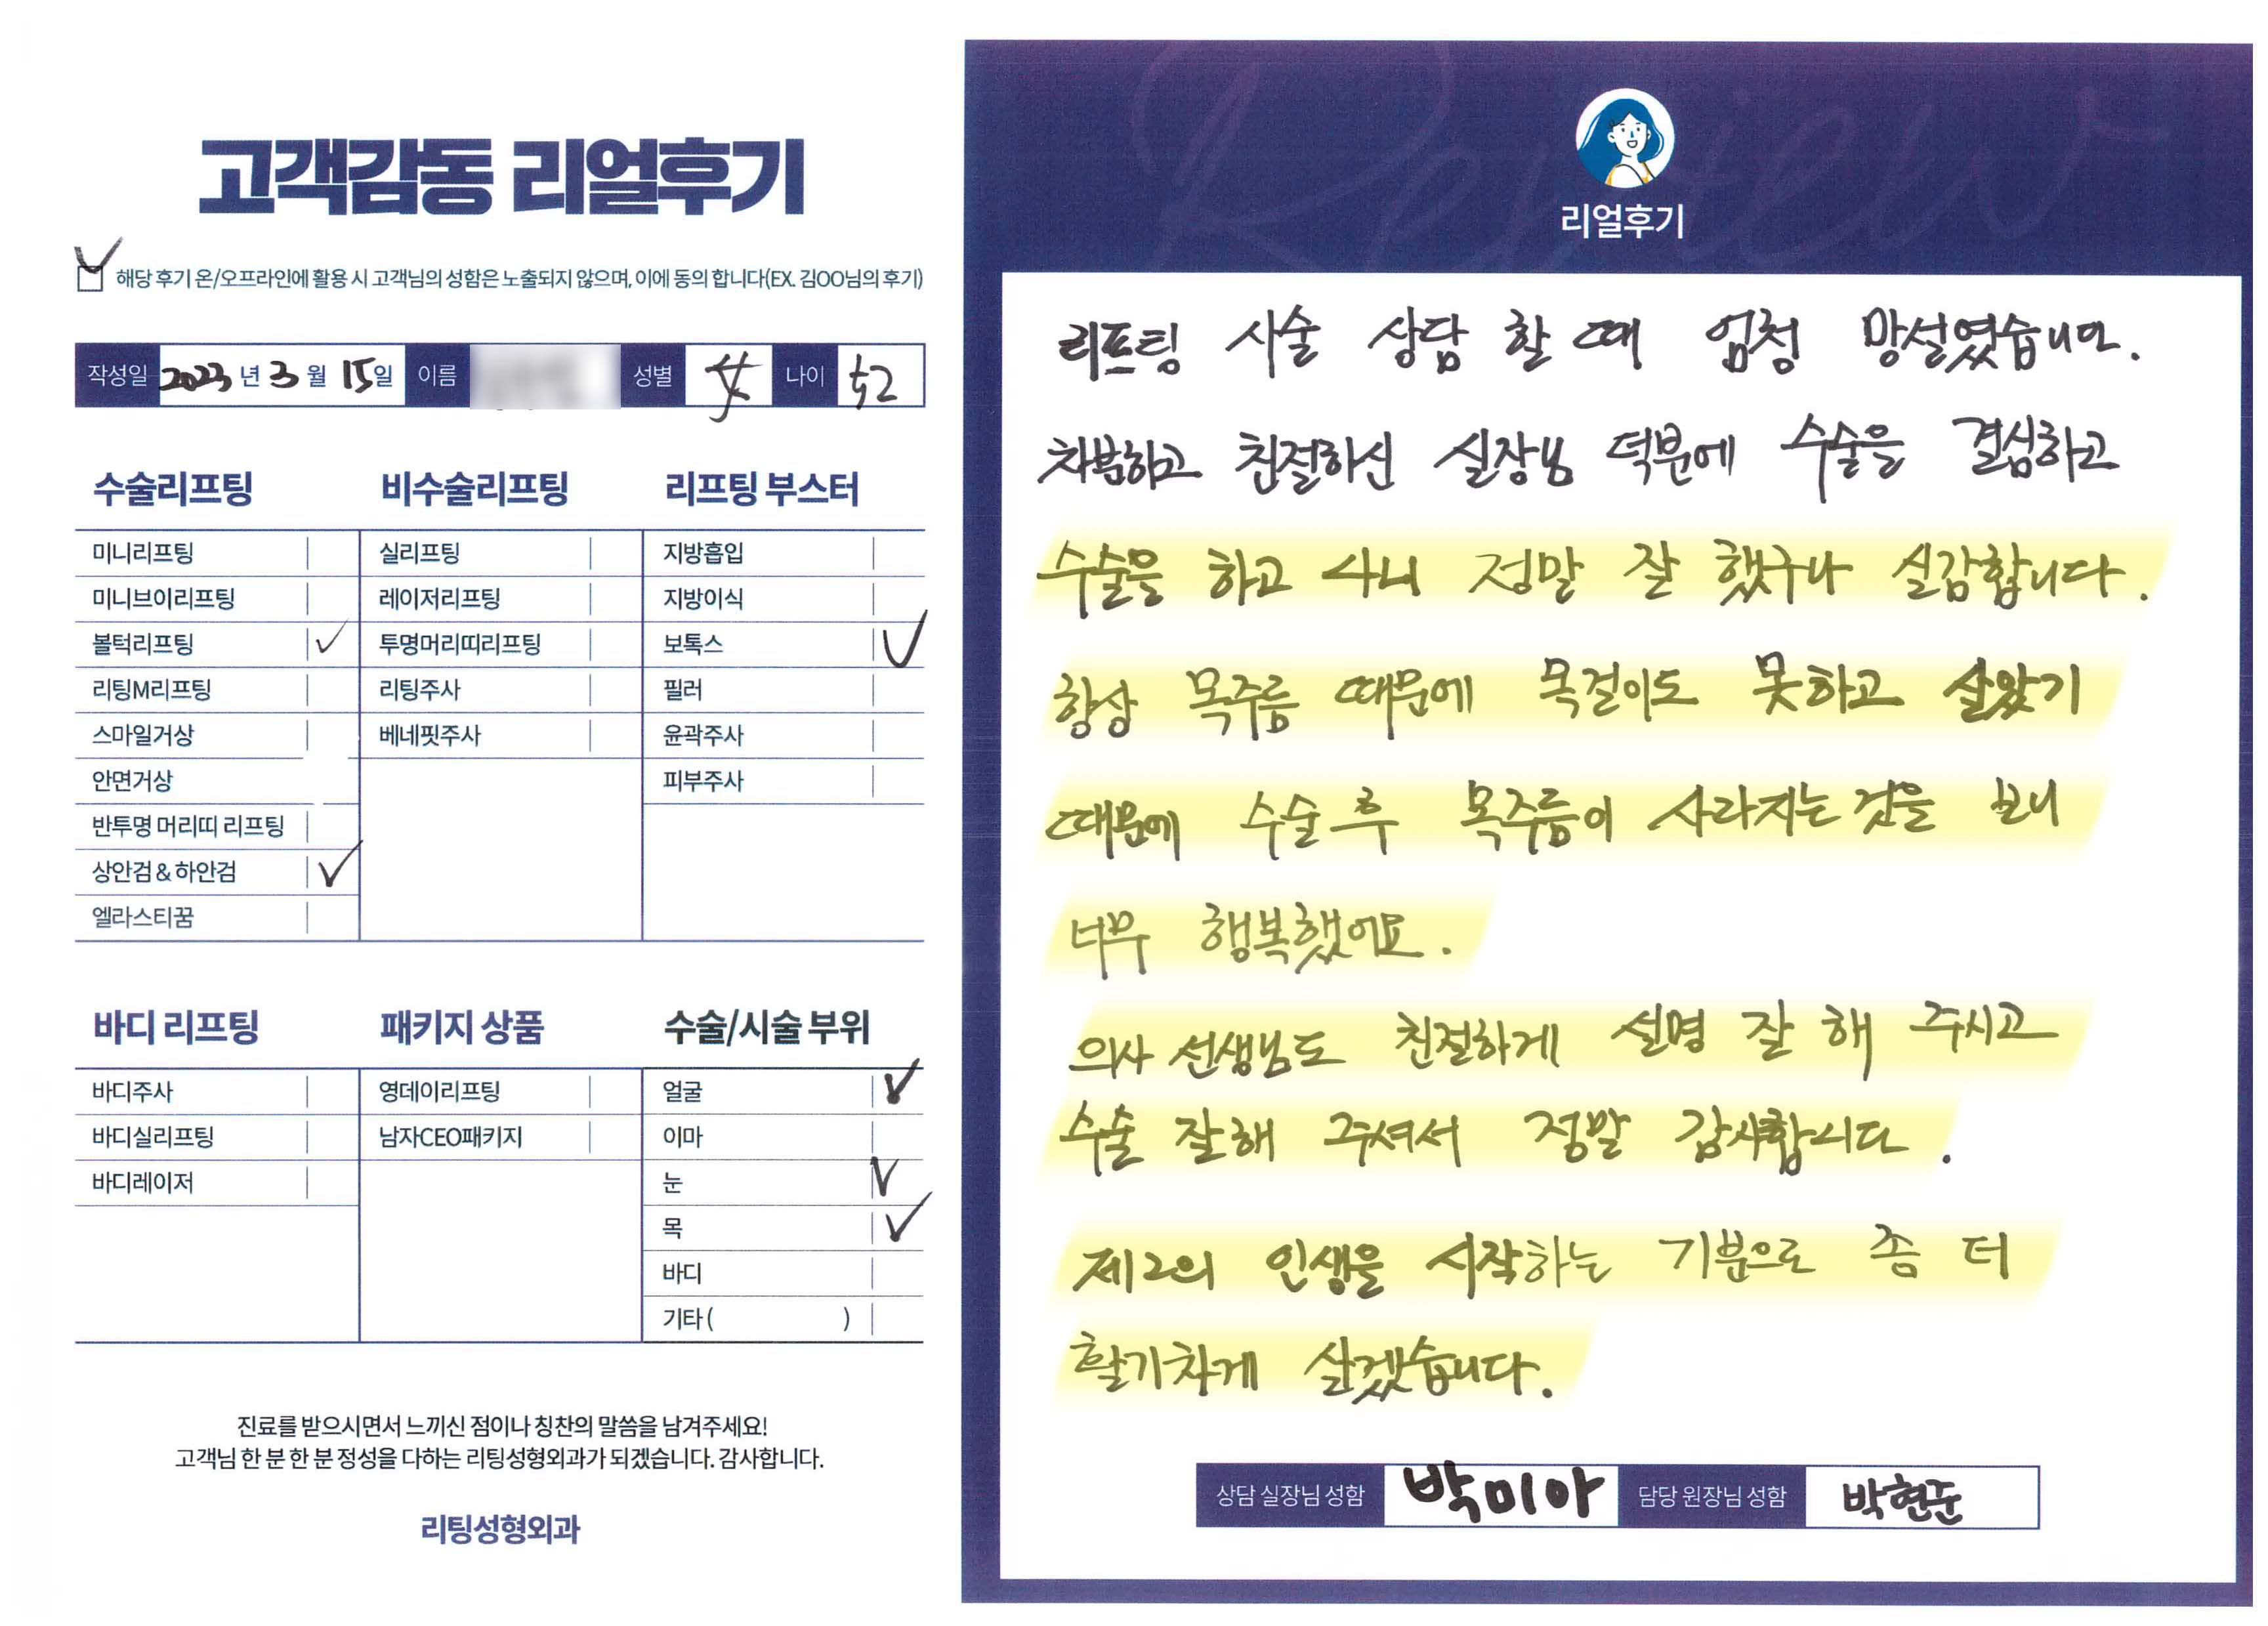 고객감동 리얼후기
해당 후기 온/오프라인에 활용 시 고객님의 성함은 노출되지 않으며, 이에 동의 합니다(EX. 김OO님의 후기)
작성일 2023 년 3 월 15 일 이름 성별 女 나이 52
수술리프팅
미니리프팅
미니브이리프팅
볼턱리프팅
리팅M리프팅
스마일거상
안면거상
반투명 머리띠 리프팅
상안검 & 하안검
엘라스티꿈
비수술리프팅
실리프팅
레이저리프팅
투명머리띠리프팅
리팅주사
베네핏주사
리프팅 부스터
지방흡입
지방이식
보톡스
필러
윤곽주사
피부주사
바디 리프팅
바디주사
바디실리프팅
바디레이저
패키지 상품
영데이리프팅
남자CEO패키지
수술/시술 부위
얼굴
이마
눈
목
바디
기타 ( )
진료를 받으시면서 느끼신 점이나 칭찬의 말씀을 남겨주세요!
고객님 한 분 한 분 정성을 다하는 리팅성형외과가 되겠습니다. 감사합니다.
리팅성형외과
Review
리얼후기
리프팅 시술 상담 할 때 엄청 망설였습니다.
차분하고 친절하신 실장님 덕분에 수술을 결심하고
수술을 하고 나니 정말 잘 했구나 실감합니다.
항상 목주름 때문에 목걸이도 못하고 살았기
때문에 수술 후 목주름이 사라지는 것을 보니
너무 행복했어요.
의사 선생님도 친절하게 설명 잘 해 주시고
수술 잘해 주셔서 정말 감사합니다.
제2의 인생을 시작하는 기분으로 좀 더
활기차게 살겠습니다.
상담 실장님 성함 박미아 담당 원장님 성함 박현준